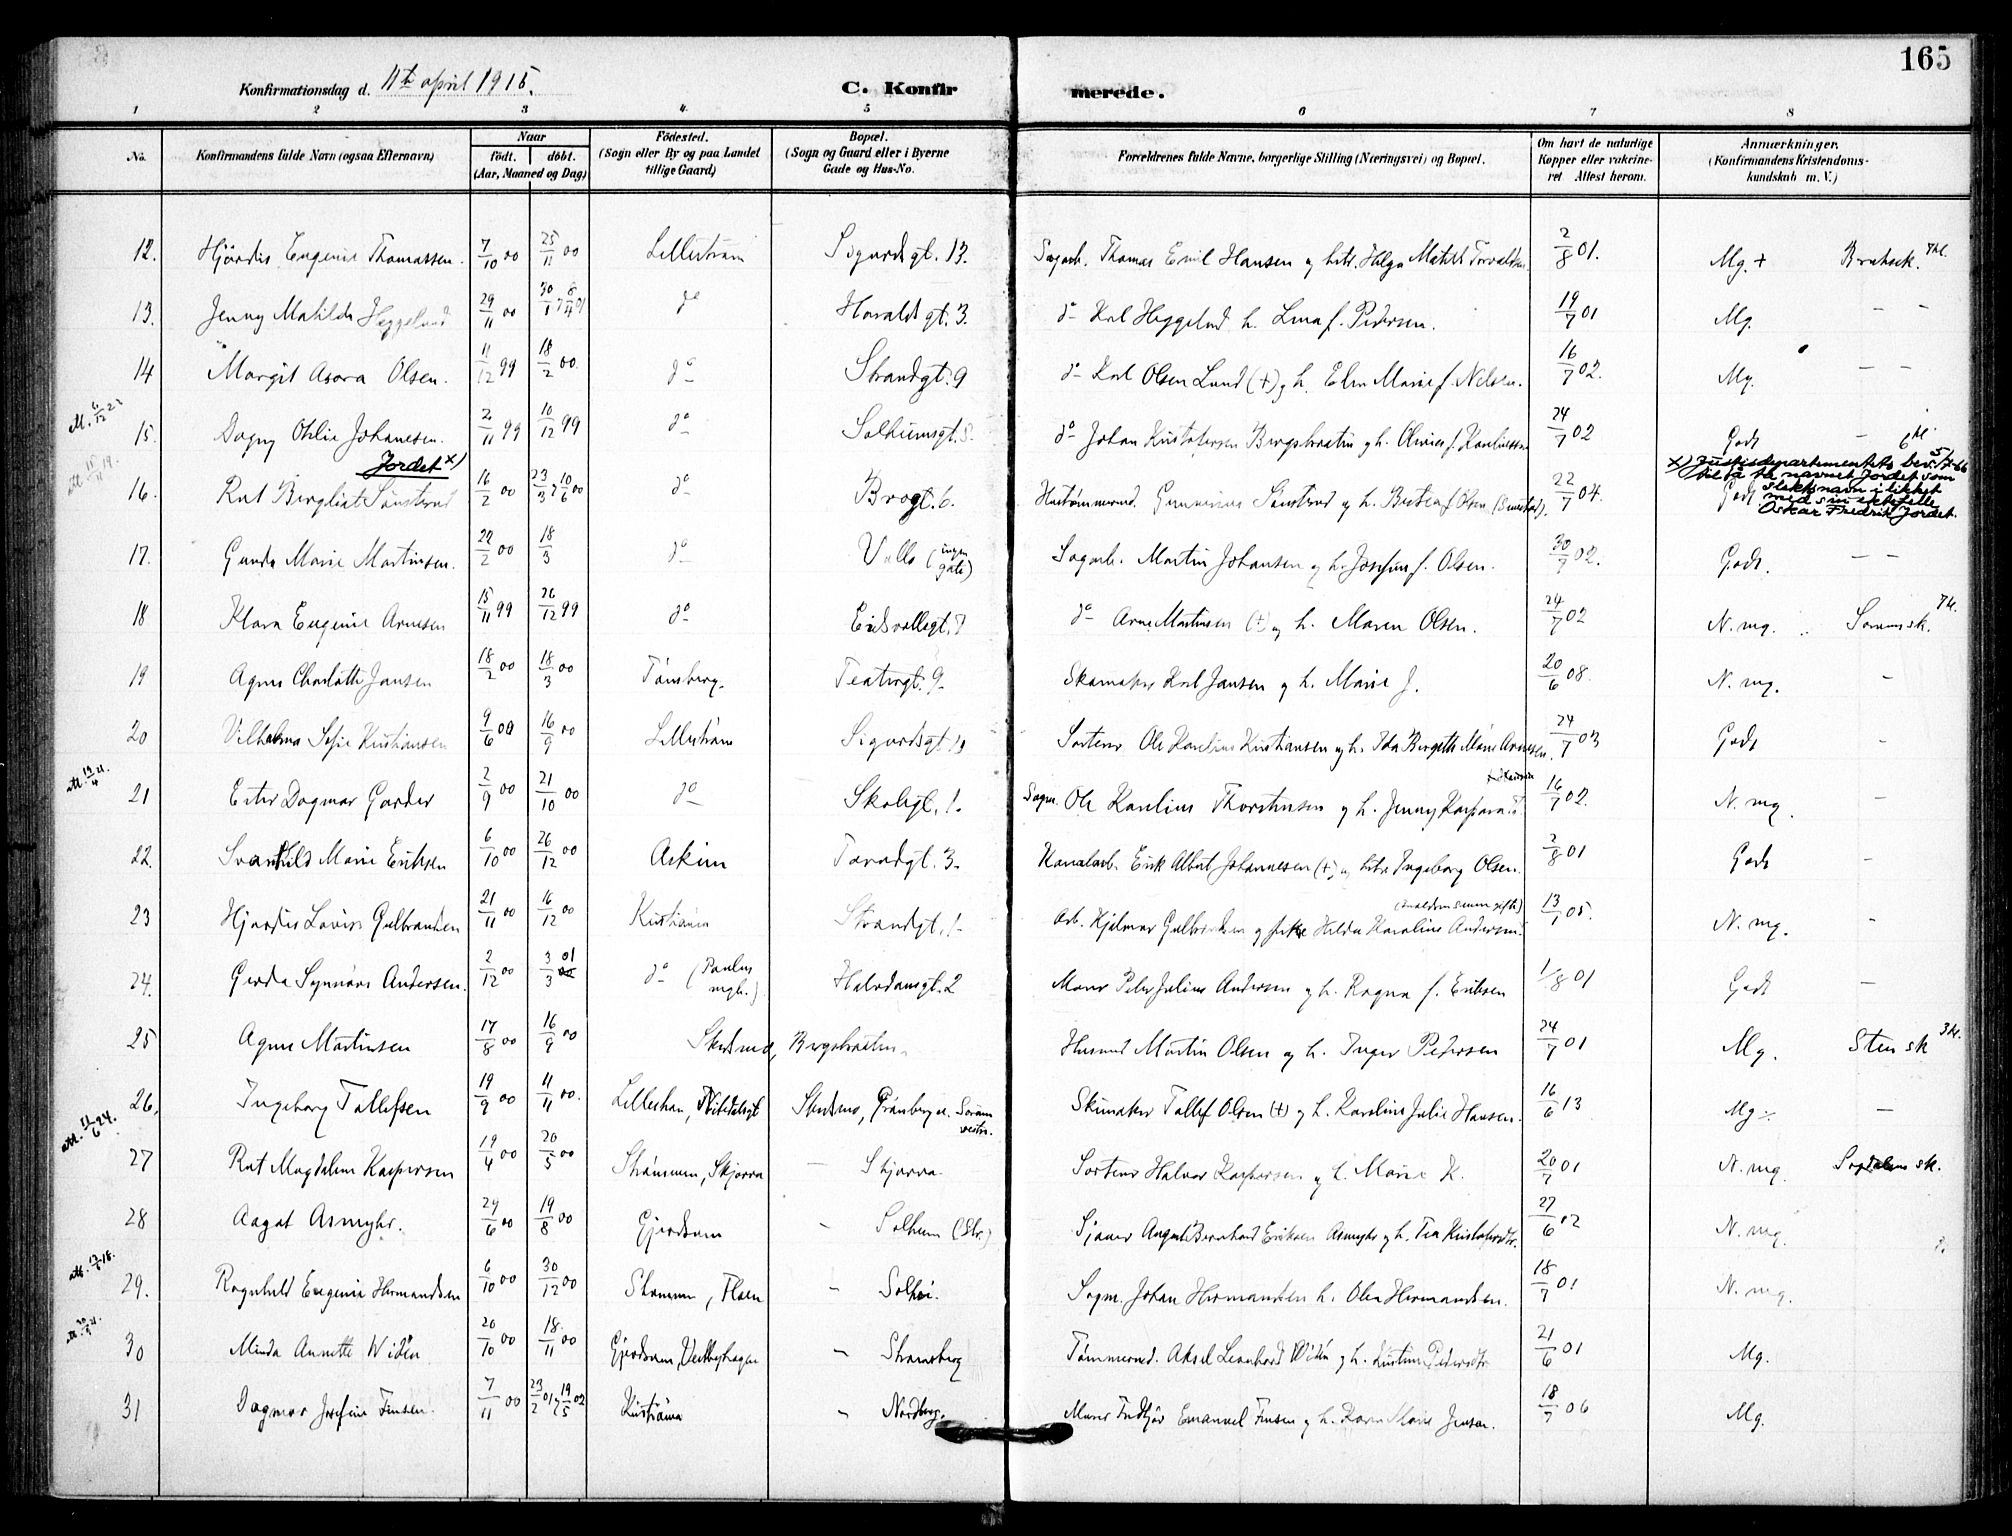 165
Konfirmationsdag d. 11te april 1915.
C. Konfirmerede.
1 2 3 4 5 6 7 8
No.
Konfirmandens fulde Navn (ogsaa Efternavn)
Naar
födt. döbt.
(Aar, Maaned og Dag)
Födested.
(Sogn eller By og paa Landet
tillige Gaard)
Bopæl.
(Sogn og Gaard eller i Byerne
Gade og Hus-No.
Forældrenes fulde Navne, borgerlige Stilling (Næringsvei) og Bopæl.
Om havt de naturlige
Kopper eller vakcine-
ret Attest herom.
Anmærkninger.
(Konfirmandens Kristendoms-
kundskab m. V.)
12. Hjördis Eugenie Thomassen. 7/10 00 25/11 00 Lilleström Sigurdsgt. 13. Sagarb. Thomas Emil Hansen og Helga Matild 2/8 01. Mg. + 7kl.
13. Jenny Matilde Heggelund 29/11 00 do Haraldsgt. 3. do Karl Heggelund h. Lina f. Pedersen. 19/7 01 Mg. — —
14 Margit Asora Olsen. 11/12 99 18/2 00. do Strandgt. 9 do Karl Olsen Lund (+) og h. Elen Marie f. Nilsen. 16/7 02. Mg. — —
15. Dagny Otilie Johanesen. 2/11 99 10/12 99 do Solheimsgt. do Johan Kristofersen Bergsbraatin og h. Olivia f. 24/7 02 Godt — 6 kl.
Jordet x)
16. Rut Bergliot 16/2 00 23/3 10/6 00 do Brogt. 6. Hustömmermd. og h. f. Olsen 22/7 04. Godt
x) Justisdepartementets bev. 5/7-66
til å ta navnet Jordet som
slektsnavn i likhet
med sin ektefelle
Oskar Fredrik Jordet.
17. Gunda Marie Martinsen. 22/2 00 18/3 do Volla (ingen gate) Sagarb. Martin Johansen og h. Josefine f. Olsen. 30/7 02. Godt. — —
18 Klara Eugenie Arnesen 15/11 99 26/12 99 do Eidsvollsgt. 7 do Arne Martinsen (+) og h. Maren Olsen. 24/7 02 N. mg. Sörumsk. 7kl.
19 Agnes Charlotte Jansen 18/2 00 18/3 00 Tönsberg. Teatergt. 9. Skomaker Karl Jansen og h. Marie J. 20/6 08. N. mg. —
20 Vilhelma Sofie Kristiansen 9/6 00 16/9 00 Lilleström Sigurdsgt. Sorterer Ole Karelius Kristiansen og h. Ida Bergette Marie Arnesen. 24/7 03 Godt —
21 Ester Dagmar Garder 2/9 00 21/10 00 do Skolegt. 1. Sagm. Ole Karelius Thorstensen og h. Jenny Kaspara 16/7 02. N. mg. —
22. Svanhild Marie Eriksen 6/10 00 26/12 00 Askim Torvdgt. 3. Kanalarb. Erik Albert Johannesen (+) og Ingeborg Olsen. 2/8 01 Godt —
23 Hjördis Lovise Gulbrandsen 21/11 00 16/12 00 Kristiania Strandgt. 1. Arb. Hjalmar Gulbrandsen og Hilda Karoline Andersen 13/1 05. N. mg. —
24. Gerda Synnöve Andersen. 2/12 00 3/3 01 do (Paulus mgh.) Halvdansgt. 2 Murer Peder Julius Andersen og h. Ragna f. Eriksen 1/8 01 Godt —
25 Agnes Martinsen 17/8 00 16/9 00 Skedsmo, Bergsbraatin. Husmd Martin Olsen og h. Inger Pedersen 24/7 01 Mg. Stensk 3kl.
26. Ingeborg Tollefsen 19/9 00 11/11 00. Skedsmo, Grönberg Skomaker Tollef Olsen (+) og h. Karoline Julie Hansen. 16/6 13 Mg ÷ —
27 Rut Magdalene Kaspersen 19/4 00 20/5 00 Strömmen, Skjærva — Skjærva Sorterer Halvor Kaspersen og h. Marie K. 20/7 01 N. mg. Sagdalens sk.
28 Aagot Asmyhr. 24/6 00 19/8 00 Gjerdrum — Solheim (Str.) August Bernhard Eriksen Asmyhr og h. Tea Kristofersdtr. 27/6 02 N. mg.
29. Ragnhild Eugenie Hermandsen 6/10 00 30/12 00 Strömmen, Flaen — Solhei. Sagm. Johan Hermandsen h. Olea Hermandsen. 18/7 01 N. mg.
30 Minda Annette Widén 20/10 00 18/11 00 Gjerdrum, — Strömsberg Tömmermd. Aksel Leonhard Widén og h. Kristine Pedersdtr 21/6 01 Mg.
31 Dagmar Josefine Finsen. 7/11 00 23/2 01 19/5 02 Kristiania — Nordberg. Murer Fridtjöv Emanuel Finsen og h. Karen Marie Jensen. 18/7 06 Mg.